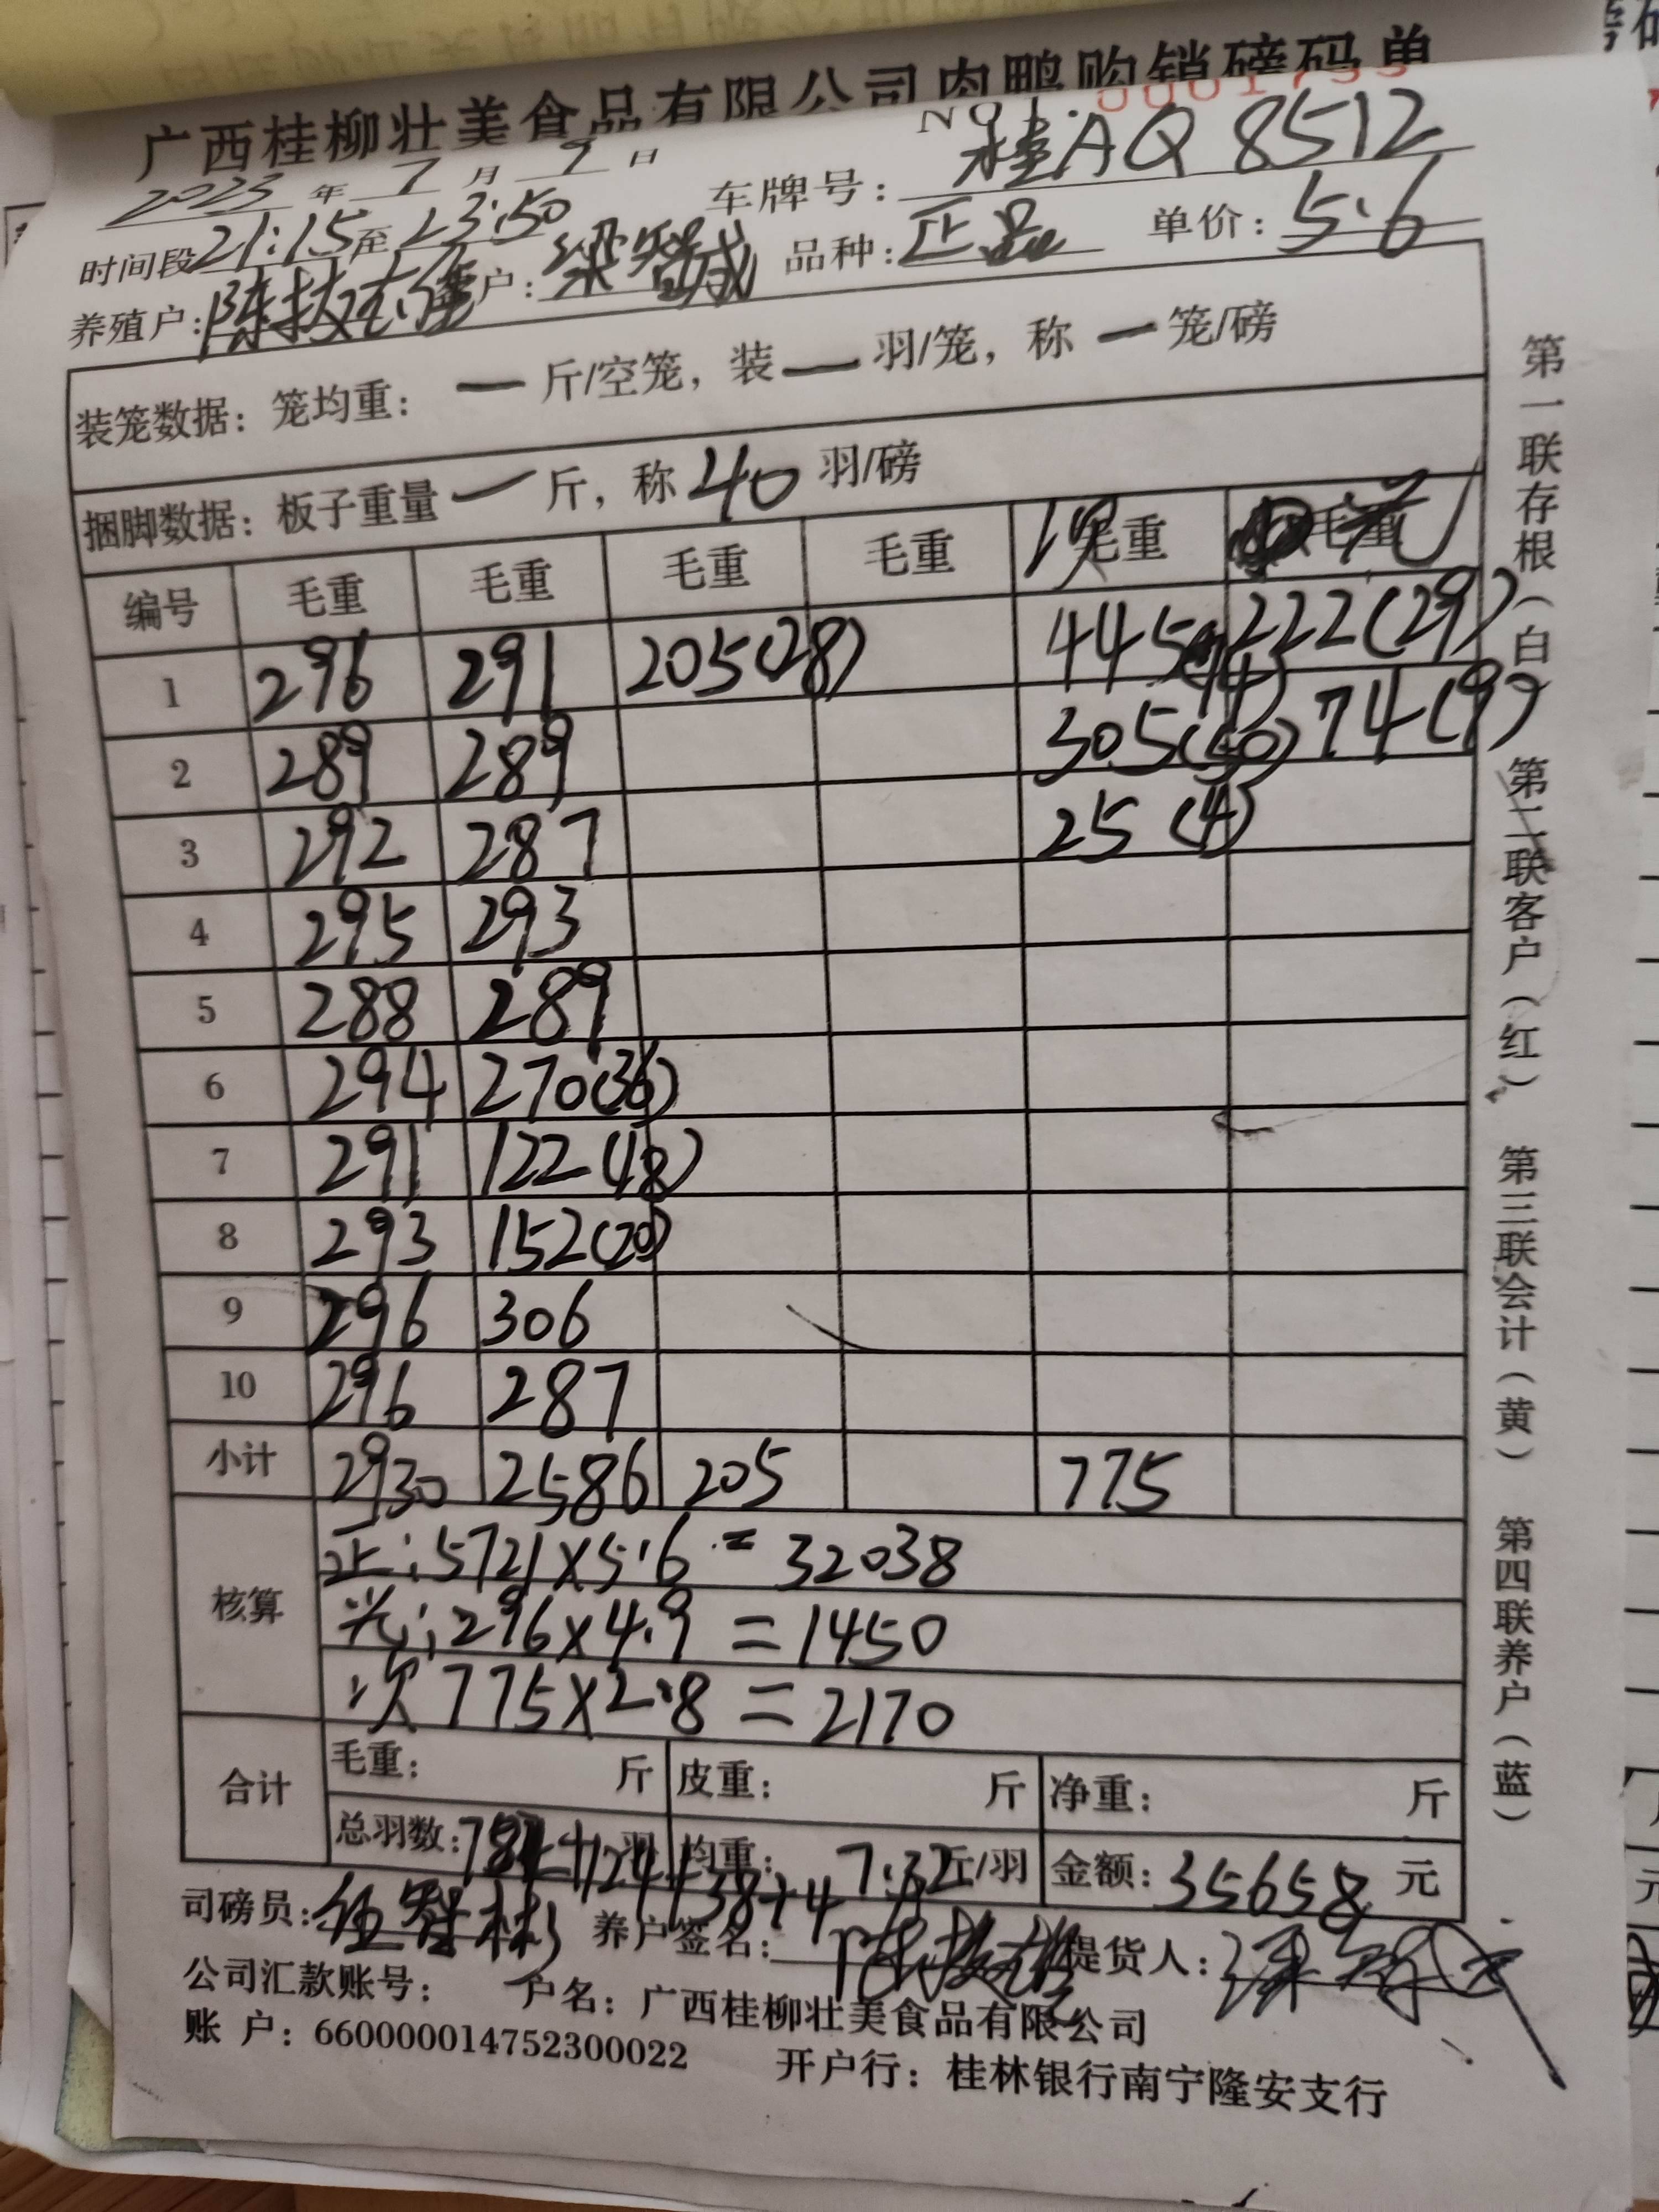 广西桂柳壮美食品有限公司肉鸭购销磅码单
NO 1. 0001755
2023 年 7 月 7 日 车牌号: 桂AQ8512
时间段 21:15 至 23:50 品种: 正品 单价: 5.6
养殖户: 户:
装笼数据: 笼均重: 一 斤/空笼, 装 一 羽/笼, 称 一 笼/磅
捆脚数据: 板子重量 一 斤, 称 40 羽/磅
编号 毛重 毛重 毛重 毛重 次 毛重 毛重 光
1 296 291 205(28) 445 222(29)
2 289 289 305(50) 74(9)
3 292 287 25(4)
4 295 293
5 288 289
6 294 270(36)
7 291 122(18)
8 293 152(20)
9 296 306
10 296 287
小计 2930 2586 205 775
核算 正:5721×5.6=32038
光:296×4.9=1450
次775×2.8=2170
合计 毛重: 斤 皮重: 斤 净重: 斤
总羽数: 羽 均重: 7.32 斤/羽 金额: 35658 元
+38+4
司磅员: 养户签名: 提货人:
公司汇款账号: 户名: 广西桂柳壮美食品有限公司
账 户: 660000014752300022 开户行: 桂林银行南宁隆安支行
第一联存根(白) 第二联客户(红) 第三联会计(黄) 第四联养户(蓝)